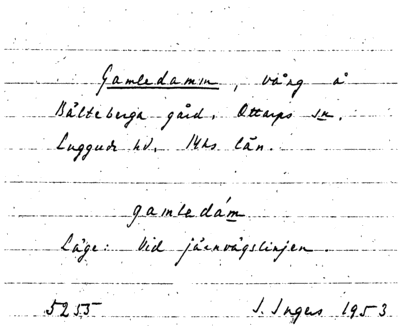 Gamledamm, vång å
Bälteberga gård, Ottarps sn.
Luggude hd. Mhs län.
gamledám
Läge: Vid järnvägslinjen.
5255 I. Ingers 1953